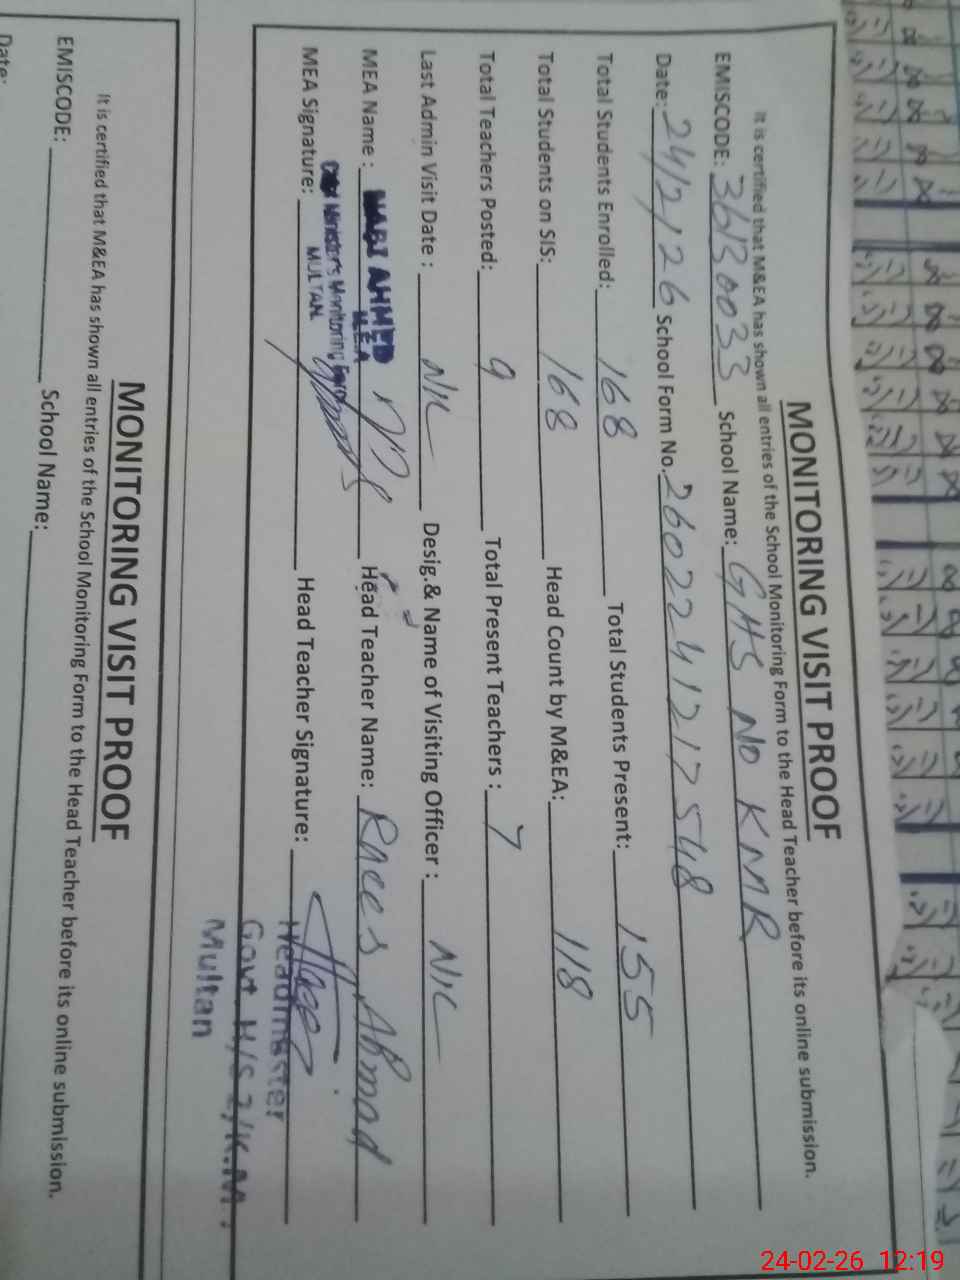 MONITORING VISIT PROOF
It is certified that M&EA has shown all entries of the School Monitoring Form to the Head Teacher before its online submission.
EMISCODE: School Name: GHS NO KMR
Date: 24/2/26 School Form No. 2602241217548
Total Students Enrolled: 168 Total Students Present: 155
Total Students on SIS: 168 Head Count by M&EA: 118
Total Teachers Posted: 9 Total Present Teachers : 7
Last Admin Visit Date : NIL Desig.& Name of Visiting Officer : NIL
MEA Name : NABI AHMED Head Teacher Name: Raees Ahmad
M.E.A
MEA Signature: Head Teacher Signature:
Chief Minister's Monitoring Force
MULTAN.
Headmaster
Govt H/S
Multan
MONITORING VISIT PROOF
It is certified that M&EA has shown all entries of the School Monitoring Form to the Head Teacher before its online submission.
EMISCODE: School Name:
Date:
24-02-26 12:19